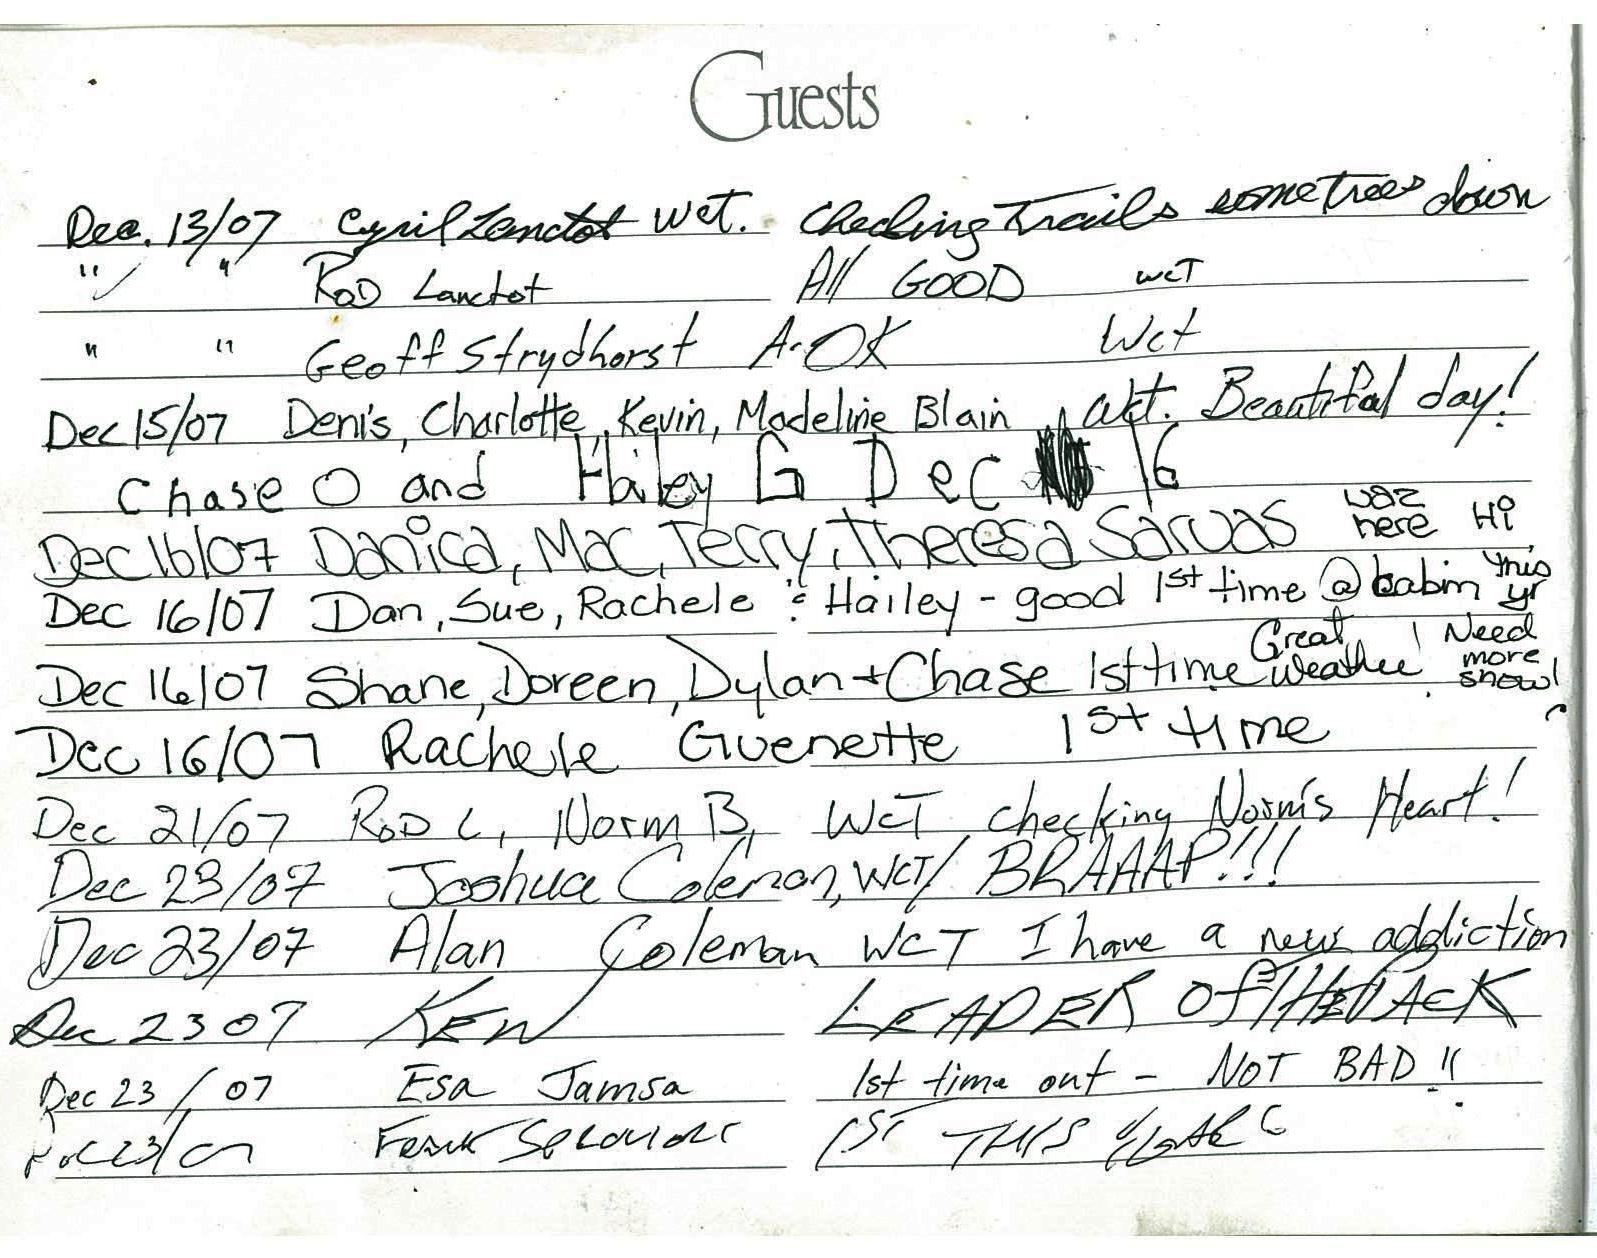 Guests
Dec. 13/07 Cyril Lanctot WCT. Checking Trails some trees down
" " ROD Lanctot All GOOD WCT
" " Geoff Strydhorst A-OK Wct
Dec 15/07 Denis, Charlotte, Kevin, Madeline Blain Wct. Beautiful day!
Chase O and Hailey G Dec 16
Dec 16/07 Danica, Mac, Terry, Theresa Sarvas waz here Hi
Dec 16/07 Dan, Sue, Rachele & Hailey - good 1st time @ cabin this yr
Dec 16/07 Shane, Doreen, Dylan + Chase 1st time Great weather! Need more snow!
Dec 16/07 Rachele Guenette 1st time
Dec 21/07 ROD L, Norm B, WCT checking Norm's Heart!
Dec 23/07 Joshua Coleman, WCT/ BRAAAP!!!
Dec 23/07 Alan Coleman WCT I have a new addiction
Dec 23 07 KEN LEADER OF THE PACK
Dec 23/07 Esa Jamsa 1st time out - NOT BAD!!
Dec 23/07 Frank 1ST THIS YEAR